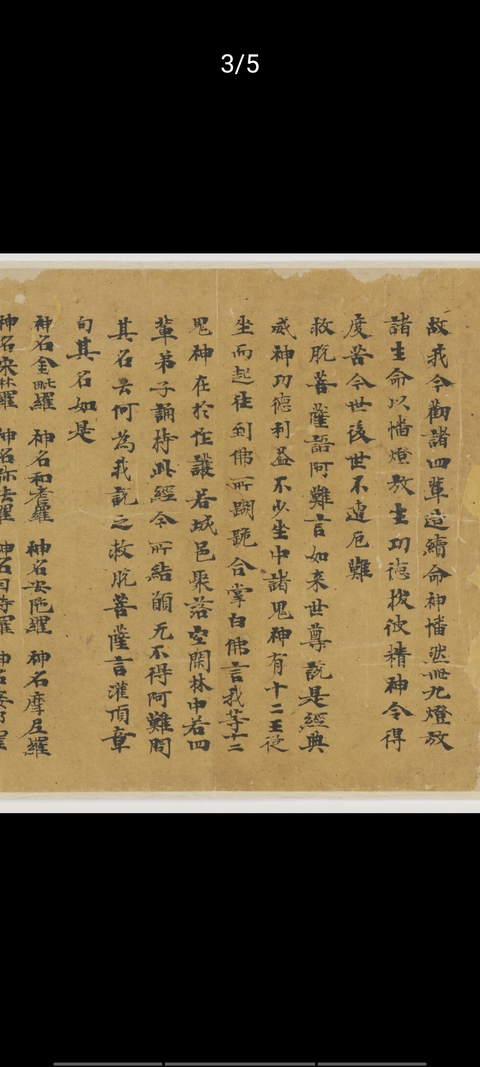 3/5
故我今勸諸四輩造續命神幡然卌九燈放
諸生命以幡燈放生功德拔彼精神令得
度苦今世後世不遭厄難
救脫菩薩語阿難言如来世尊說是經典
威神功德利益不少坐中諸鬼神有十二王從
坐而起往到佛所䠒跪合掌白佛言我等十二
鬼神在於作護若城邑聚落空閑林中若四
輩弟子誦持此經令所結願无不得阿難問
其名云何為我說之救脫菩薩言灌頂章
句其名如是
神名金毗羅 神名和耆羅 神名安陁羅 神名摩尼羅
神名宋林羅 神名 羅 神名 羅 神名 羅